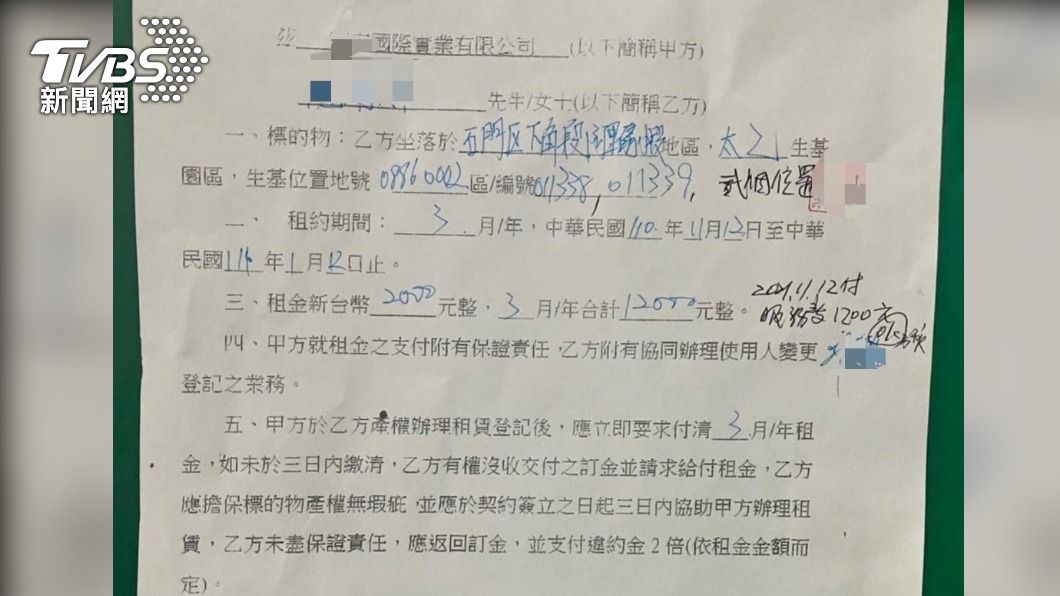 TVBS
新聞網
國際實業有限公司 (以下簡稱甲方)
先生/女士(以下簡稱乙方)
一、標的物：乙方坐落於石門区下角段 地區，太乙生基
園區，生基位置地號08860002區/編號011338，011339，貳個位置
二、 租約期間：3月/年，中華民國110年11月12日至中華
民國 年1月 日止。
三、租金新台幣2000元整，3月/年合計12000元整。
2021.11.12付
服務費1200元
四、甲方就租金之支付附有保證責任，乙方附有協同辦理使用人變更
登記之業務。
五、甲方於乙方產權辦理租賃登記後，應立即要求付清3月/年租
金，如未於三日內繳清，乙方有權沒收交付之訂金並請求給付租金，乙方
應擔保標的物產權無瑕疵，並應於契約簽立之日起三日內協助甲方辦理租
賃，乙方未盡保證責任，應返回訂金，並支付違約金2倍(依租金金額而
定)。